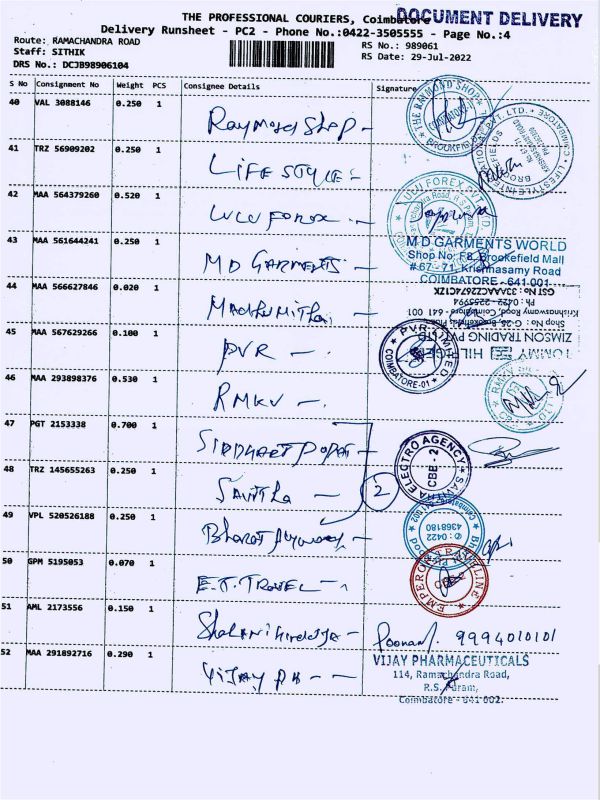 THE PROFESSIONAL COURIERS, Coimbatore
DOCUMENT DELIVERY
Delivery Runsheet - PC2 - Phone No.:0422-3505555 - Page No.:4
Route: RAMACHANDRA ROAD
RS No.: 989061
Staff: SITHIK
RS Date: 29-Jul-2022
DRS No.: DCJB98906104
S No Consignment No Weight PCS Consignee Details Signature
40 VAL 3088146 0.250 1
Raymond Shop -
THE RAYMOND SHOP
COIMBATORE
BROOKFIELDS
41 TRZ 56909202 0.250 1
LIFE STYLE -
42 MAA 564379260 0.520 1
LULU Forex -
LULU FOREX PVT. LTD.
43 MAA 561644241 0.250 1
MD GARMENTS -
M D GARMENTS WORLD
Shop No: F8, Brookefield Mall
# 67 - 71, Krishnasamy Road
COIMBATORE - 641 001
44 MAA 566627846 0.020 1
Madhumitha,
TOMMY HILFIGER
ZIMSON TRADING PVT LTD
Krishnaswamy Road, Coimbatore - 641 001
GST No : 33AAACZ2674C1ZK
45 MAA 567629266 0.100 1
PVR -
PVR LIMITED
COIMBATORE-01
46 MAA 293898376 0.530 1
RMKV -
RMKV
47 PGT 2153338 0.700 1
48 TRZ 145655263 0.250 1
Savitha -
2
ELECTRO AGENCY
CBE 2
49 VPL 520526188 0.250 1
Bharat
0422
4368180
50 GPM 5195053 0.070 1
E.T. TRAVEL -
EMPEROR TRAVELINE
51 AML 2173556 0.150 1
Poonam. 9994010101
52 MAA 291892716 0.290 1
Vijay Ph - -
VIJAY PHARMACEUTICALS
114, Ramachandra Road,
R.S. Puram,
Coimbatore - 641 002.